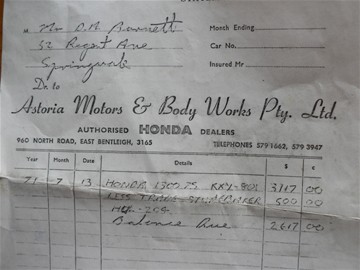 Mr D.A. Barnett
Month Ending
52 Regent Ave
Car No.
Springvale
Insured Mr
Dr. to
Astoria Motors & Body Works Pty. Ltd.
AUTHORISED HONDA DEALERS
960 NORTH ROAD, EAST BENTLEIGH, 3165 TELEPHONES 579 1662, 579 3947
Year Month Date Details $ c
71 7 13 HONDA 1300 75 KXY-801 3117 00
LESS TRADE STUDEBAKER 500 00
HGK-206
Balance Due 2617 00